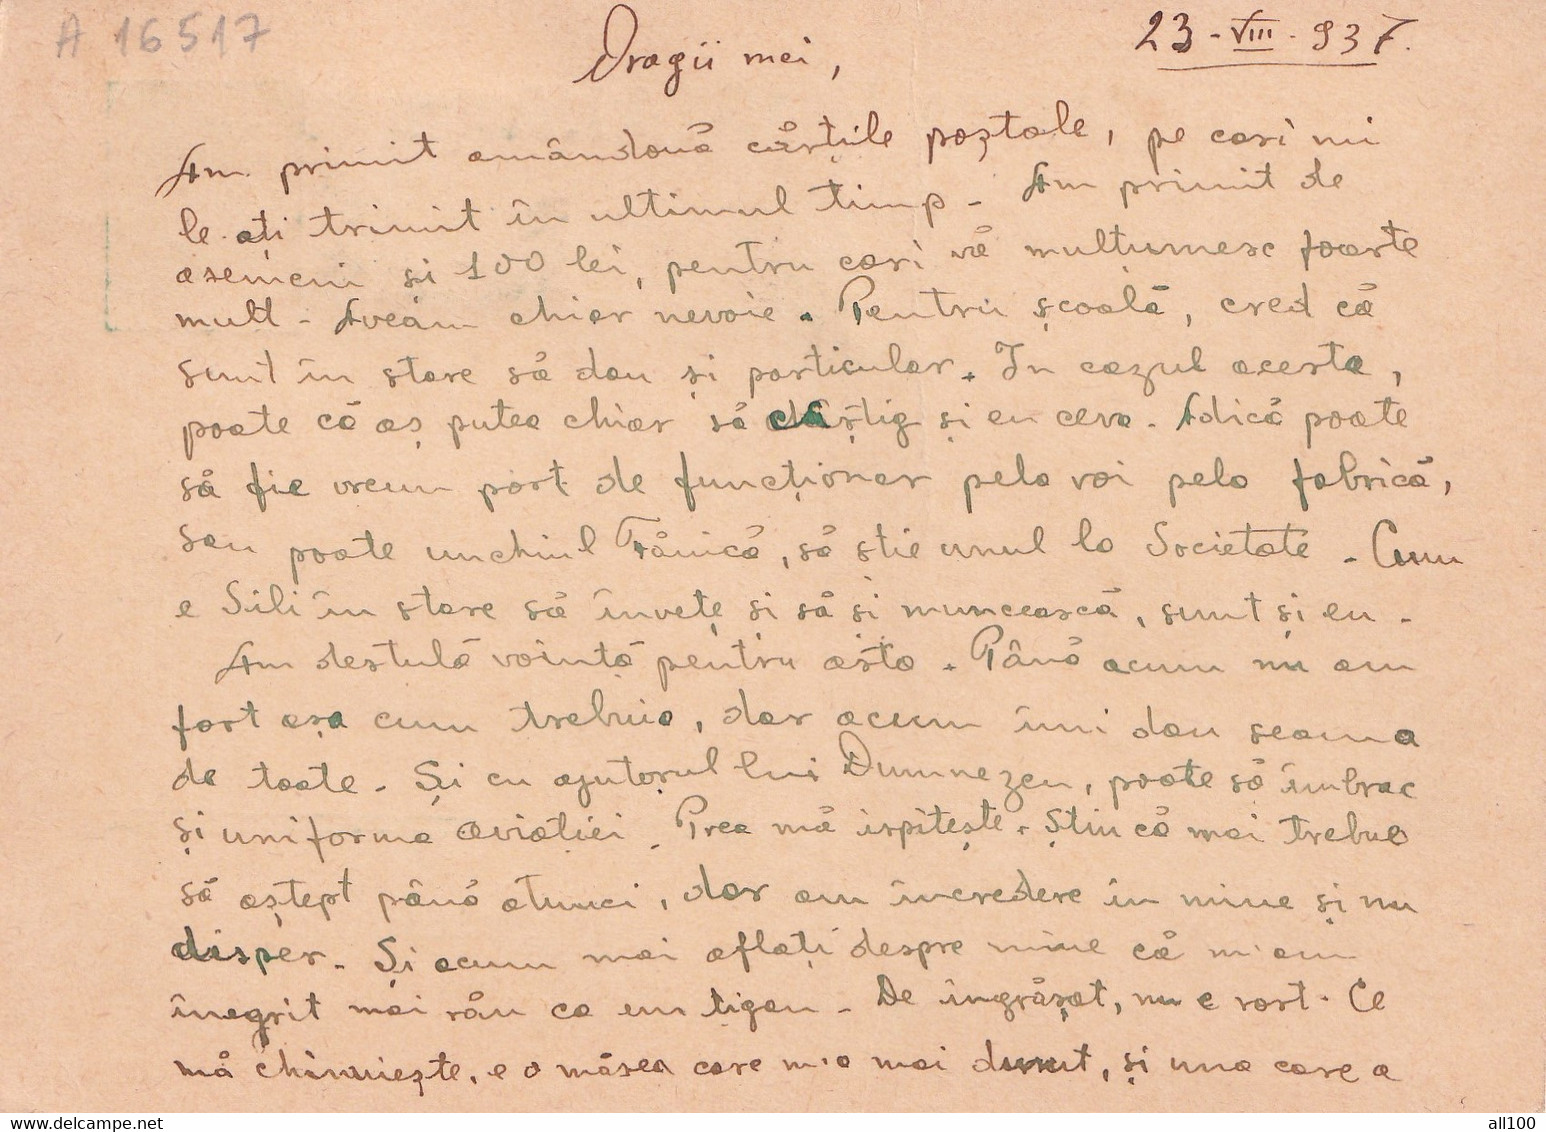 A 16517
23-VIII-937.
Dragii mei,
Am primit amândouă cărțile poștale, pe cari mi
le-ați trimit în ultimul timp - Am primit de
asemeni si 100 lei, pentru cari vă mulțumesc foarte
mult - Aveam chiar nevoie. Pentru școală, cred că
sunt în stare să dau și particular. In cazul acesta,
poate că aș putea chiar să câștig și eu ceva. Adică poate
să fie vreun post de funcționar pela voi pela fabrică,
sau poate unchiul Fănică, să știe unul la Societate - Cum
e Sili în stare să învețe și să și muncească, sunt și eu -
Am destulă voință pentru asta. Până acum nu am
fost așa cum trebuia, dar acum îmi dau seama
de toate - Și cu ajutorul lui Dumnezeu, poate să îmbrac
și uniforma aviației. Prea mă ispitește. Știu că mai trebue
să aștept până atunci, dar am încredere în mine și nu
disper. Și acum mai aflați despre mine că m'am
înegrit mai rău ca un țigan - De îngrășat, nu e rost. Ce
mă chinuiește, e o măsea care m'a mai durut, și una care a
www.delcampe.net
all100